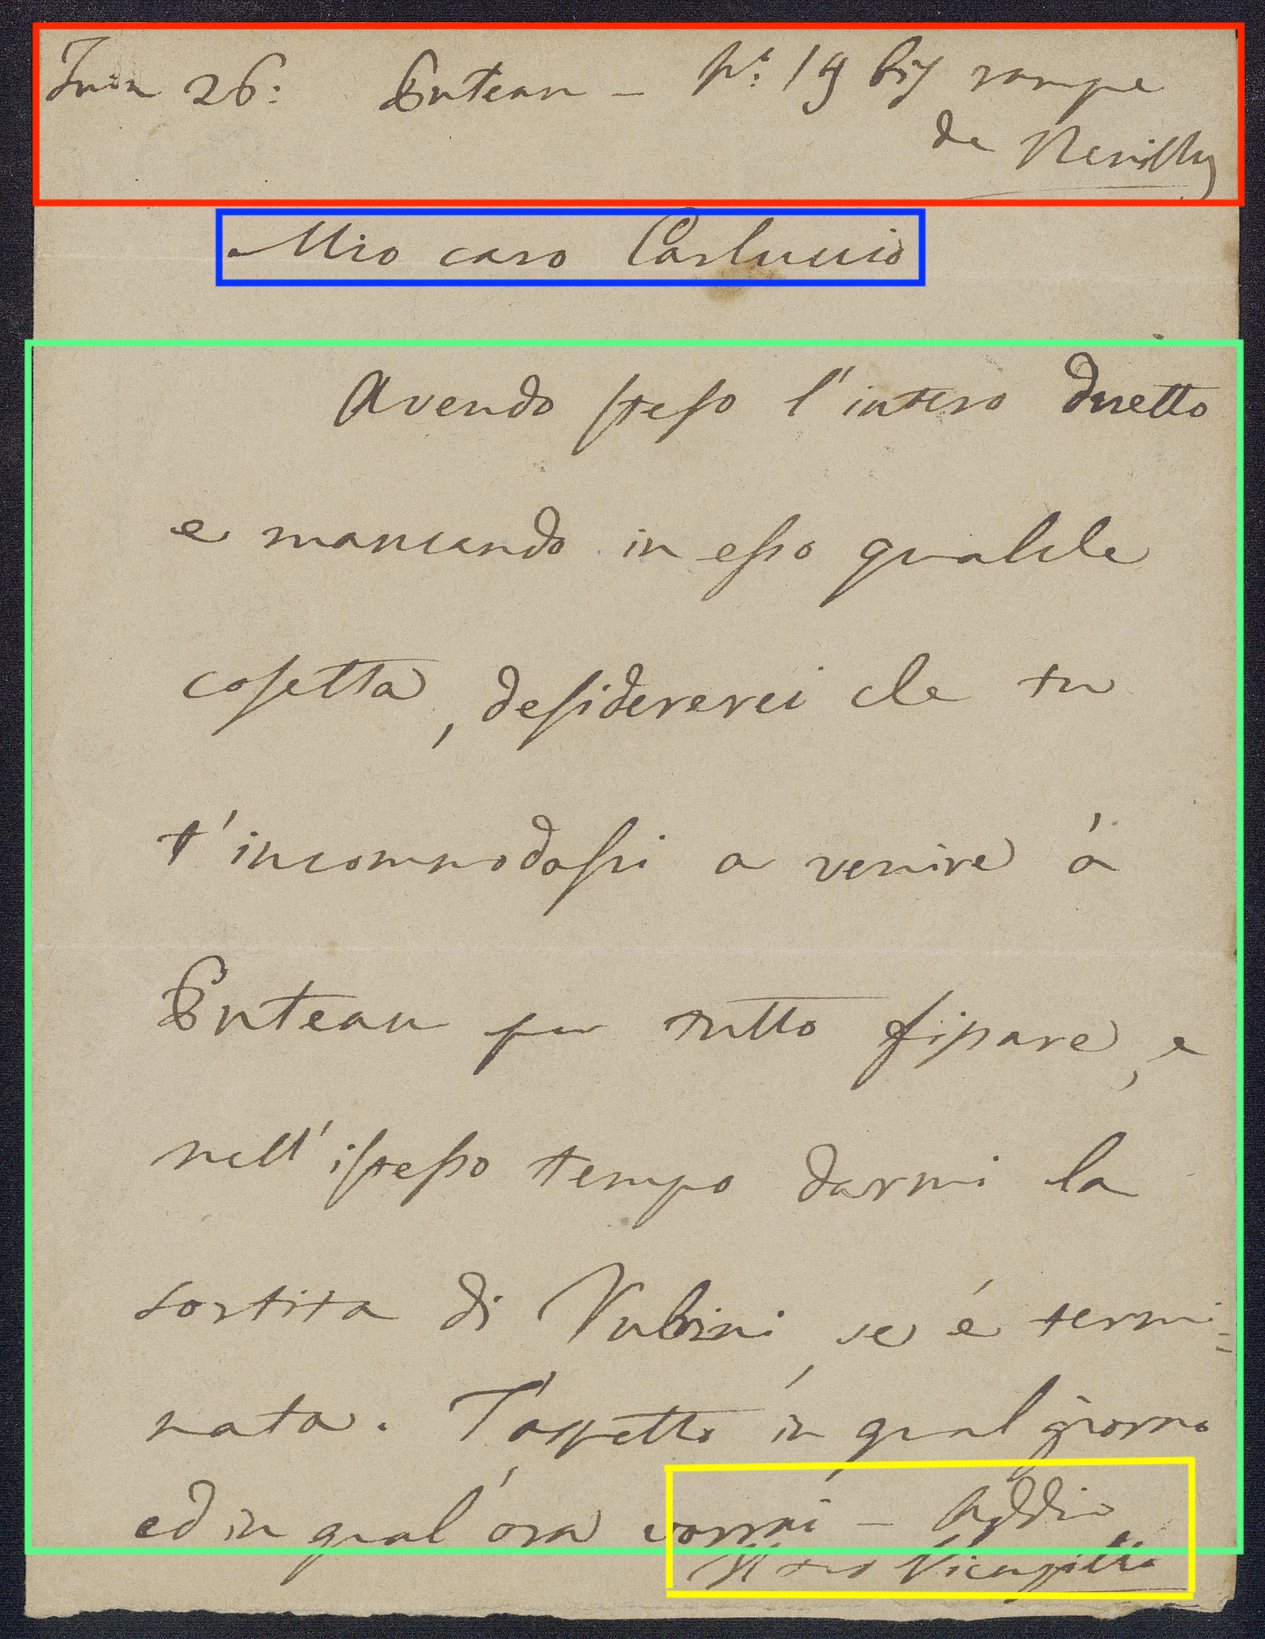 Juin 26: Puteau – N.º 19 bis rampe
de Neuilly
Mio caro Carluccio
Avendo steso l'intero duetto
e mancando in esso qualche
cosetta, desidererei che tu
t'incommodassi a venire à
Puteau per tutto fissare, e
nell'istesso tempo darmi la
sortita di Rubini, se é termi=
nata. T'aspetto in qual giorno
ed in qual'ora vorrai – Addio
Il tuo Vicenzillo